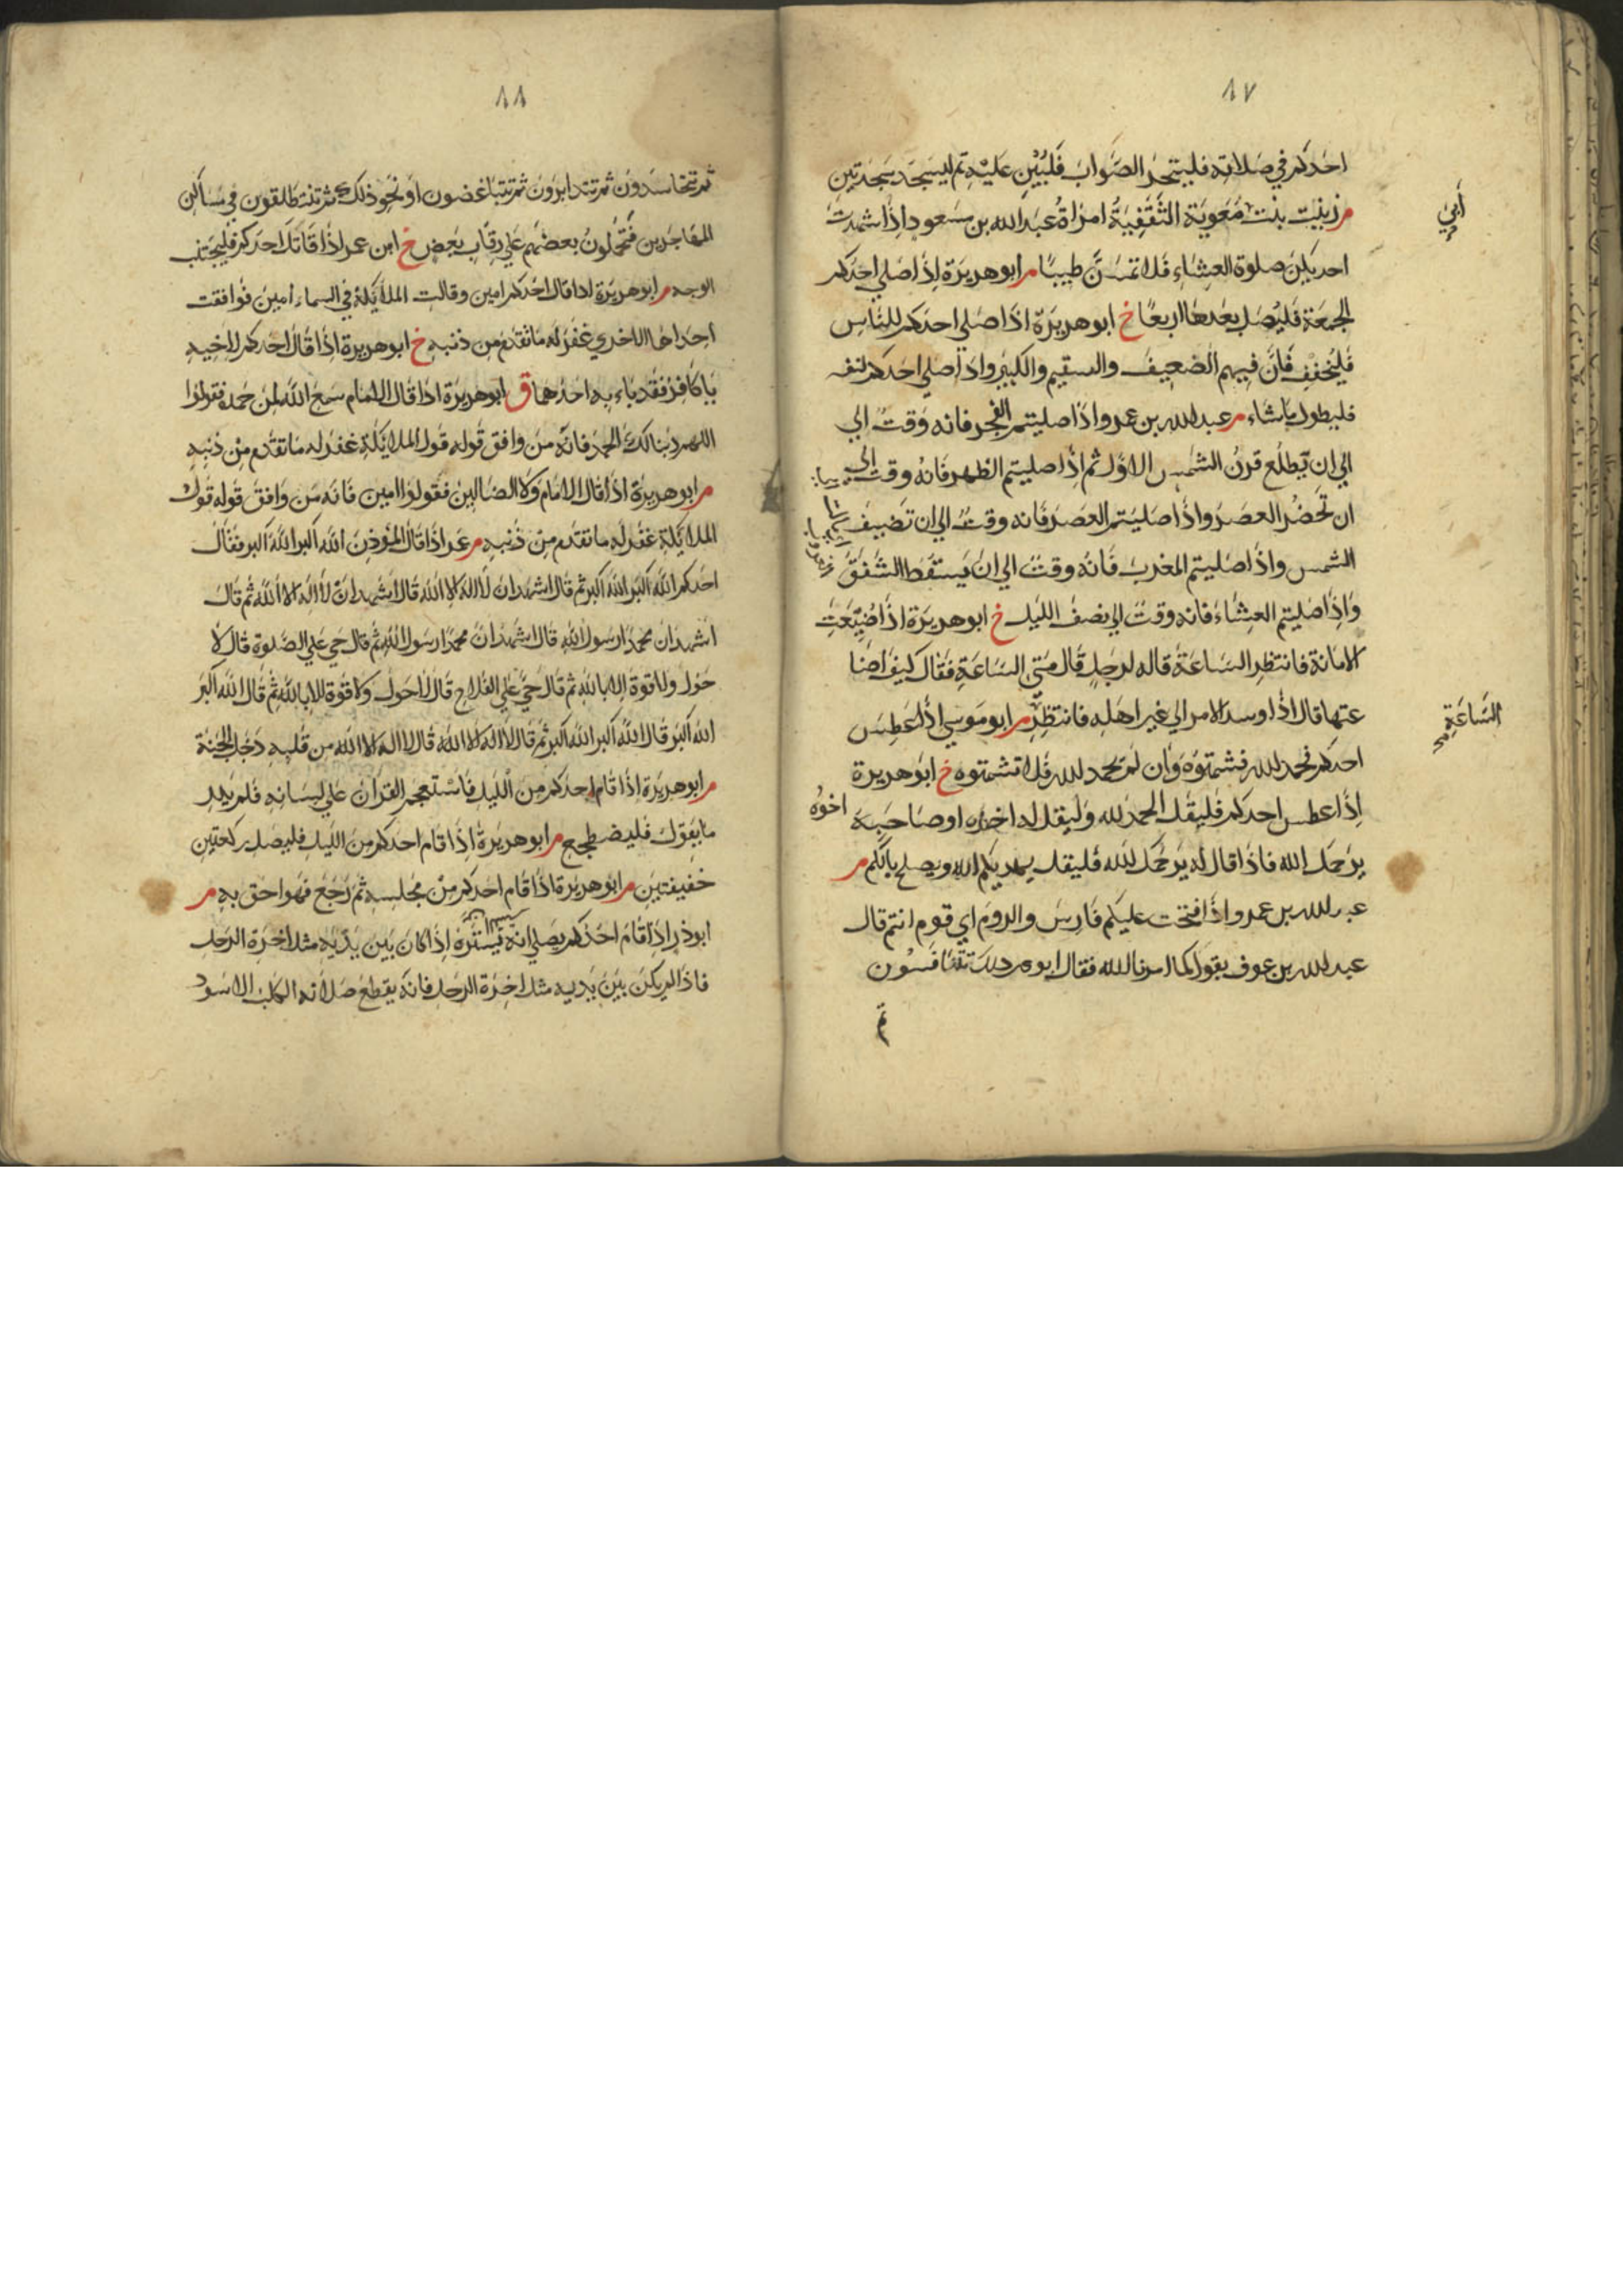 ٨٧
احدكم في صلاته فليتحر الصَّواب فليُبْنِ عليه ثم ليسجد سجدتين
م زينب بنت معوية الثقفية امراة عبد الله بن مسعود اذا شهدت
ابي
احديكن صلوة العشاء فلا تمسن طيبا م ابو هريرة اذا صلي احدكم
الجمعة فليصل بعدها اربعا خ ابو هريرة اذا صلي احدكم للناس
فليخفف فان فيهم الضعيف والسقيم والكبير واذا صلي احدكم لنفسه
فليطول ما شاء م عبد الله بن عمرو اذا صليتم الفجر فانه وقت الي
الي ان يطلع قرن الشمس الاول ثم اذا صليتم الظهر فانه وقت الي
ان تحضر العصر واذا صليتم العصر فانه وقت الي ان تضيف
الشمس واذا صليتم المغرب فانه وقت الي ان يسقط الشفق
واذا صليتم العشاء فانه وقت الي نصف الليل خ ابو هريرة اذا ضيعت
الامانة فانتظر الساعة قاله لرجل قال متي الساعة فقال كيف اضا
عتها قال اذا وسد الامر الي غير اهله فانتظر م ابو موسي اذا عطس
الساعة
احدكم فحمد الله فشمتوه وان لم يحمد الله فلا تشمتوه خ ابو هريرة
اذا عطس احدكم فليقل الحمد لله وليقل له اخوه او صاحبه
اخوه
يرحمك الله فاذا قال له يرحمك الله فليقل يهديكم الله ويصلح بالكم م
عبد الله بن عمرو اذا فتحت عليكم فارس والروم اي قوم انتم قال
عبد الله بن عوف نقول كما امرنا الله فقال او غير ذلك تتنافسون
ثم
٨٨
ثم تتحاسدون ثم تتدابرون ثم تتباغضون او نحو ذلك ثم تنطلقون في مساكن
المهاجرين فتجعلون بعضهم علي رقاب بعض خ ابن عمر اذا قاتل احدكم فليجتنب
الوجه م ابو هريرة اذا قال احدكم امين وقالت الملائكة في السماء امين فوافقت
احداها الاخري غفر له ما تقدم من ذنبه خ ابو هريرة اذا قال احدكم لاخيه
يا كافر فقد باء به احدهما ق ابو هريرة اذا قال الامام سمع الله لمن حمده فقولوا
اللهم ربنا لك الحمد فانه من وافق قوله قول الملائكة غفر له ما تقدم من ذنبه
م ابو هريرة اذا قال الامام ولا الضالين فقولوا امين فانه من وافق قوله قول
الملائكة غفر له ما تقدم من ذنبه م عمر اذا قال المؤذن الله اكبر الله اكبر فقال
احدكم الله اكبر الله اكبر ثم قال اشهد ان لا اله الا الله قال اشهد ان لا اله الا الله ثم قال
اشهد ان محمدا رسول الله قال اشهد ان محمدا رسول الله ثم قال حي علي الصلوة قال لا
حول ولا قوة الا بالله ثم قال حي علي الفلاح قال لا حول ولا قوة الا بالله ثم قال الله اكبر
الله اكبر قال الله اكبر الله اكبر ثم قال لا اله الا الله قال لا اله الا الله من قلبه دخل الجنة
م ابو هريرة اذا قام احدكم من الليل فاستعجم القران علي لسانه فلم يدر
ما يقول فليضطجع م ابو هريرة اذا قام احدكم من الليل فليصل ركعتين
خفيفتين م ابو هريرة اذا قام احدكم من مجلسه ثم رجع فهو احق به م
ابو ذر اذا قام احدكم يصلي انه يستره اذا كان بين يديه مثل اخرة الرحل
فاذا لم يكن بين يديه مثل اخرة الرحل فانه يقطع صلاته الكلب الاسود